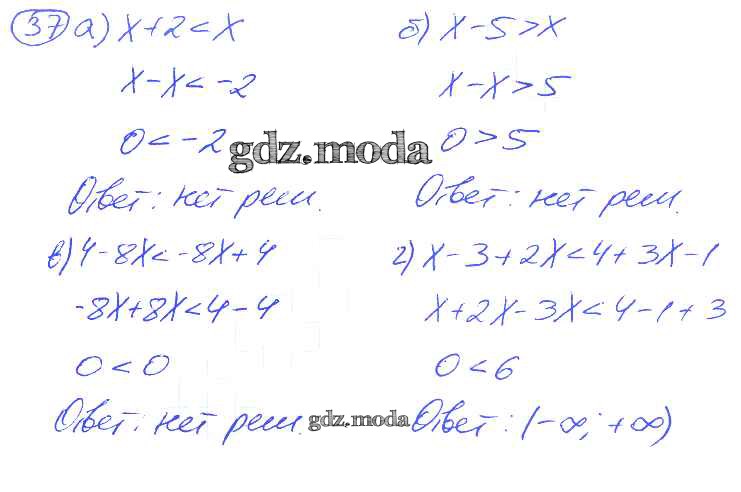 37 а) x+2<x
x-x<-2
0<-2
Ответ: нет реш.
б) x-5>x
x-x>5
0>5
Ответ: нет реш.
gdz.moda
в) 4-8x<-8x+4
-8x+8x<4-4
0<0
Ответ: нет реш.
г) x-3+2x<4+3x-1
x+2x-3x<4-1+3
0<6
Ответ: (-∞; +∞)
gdz.moda